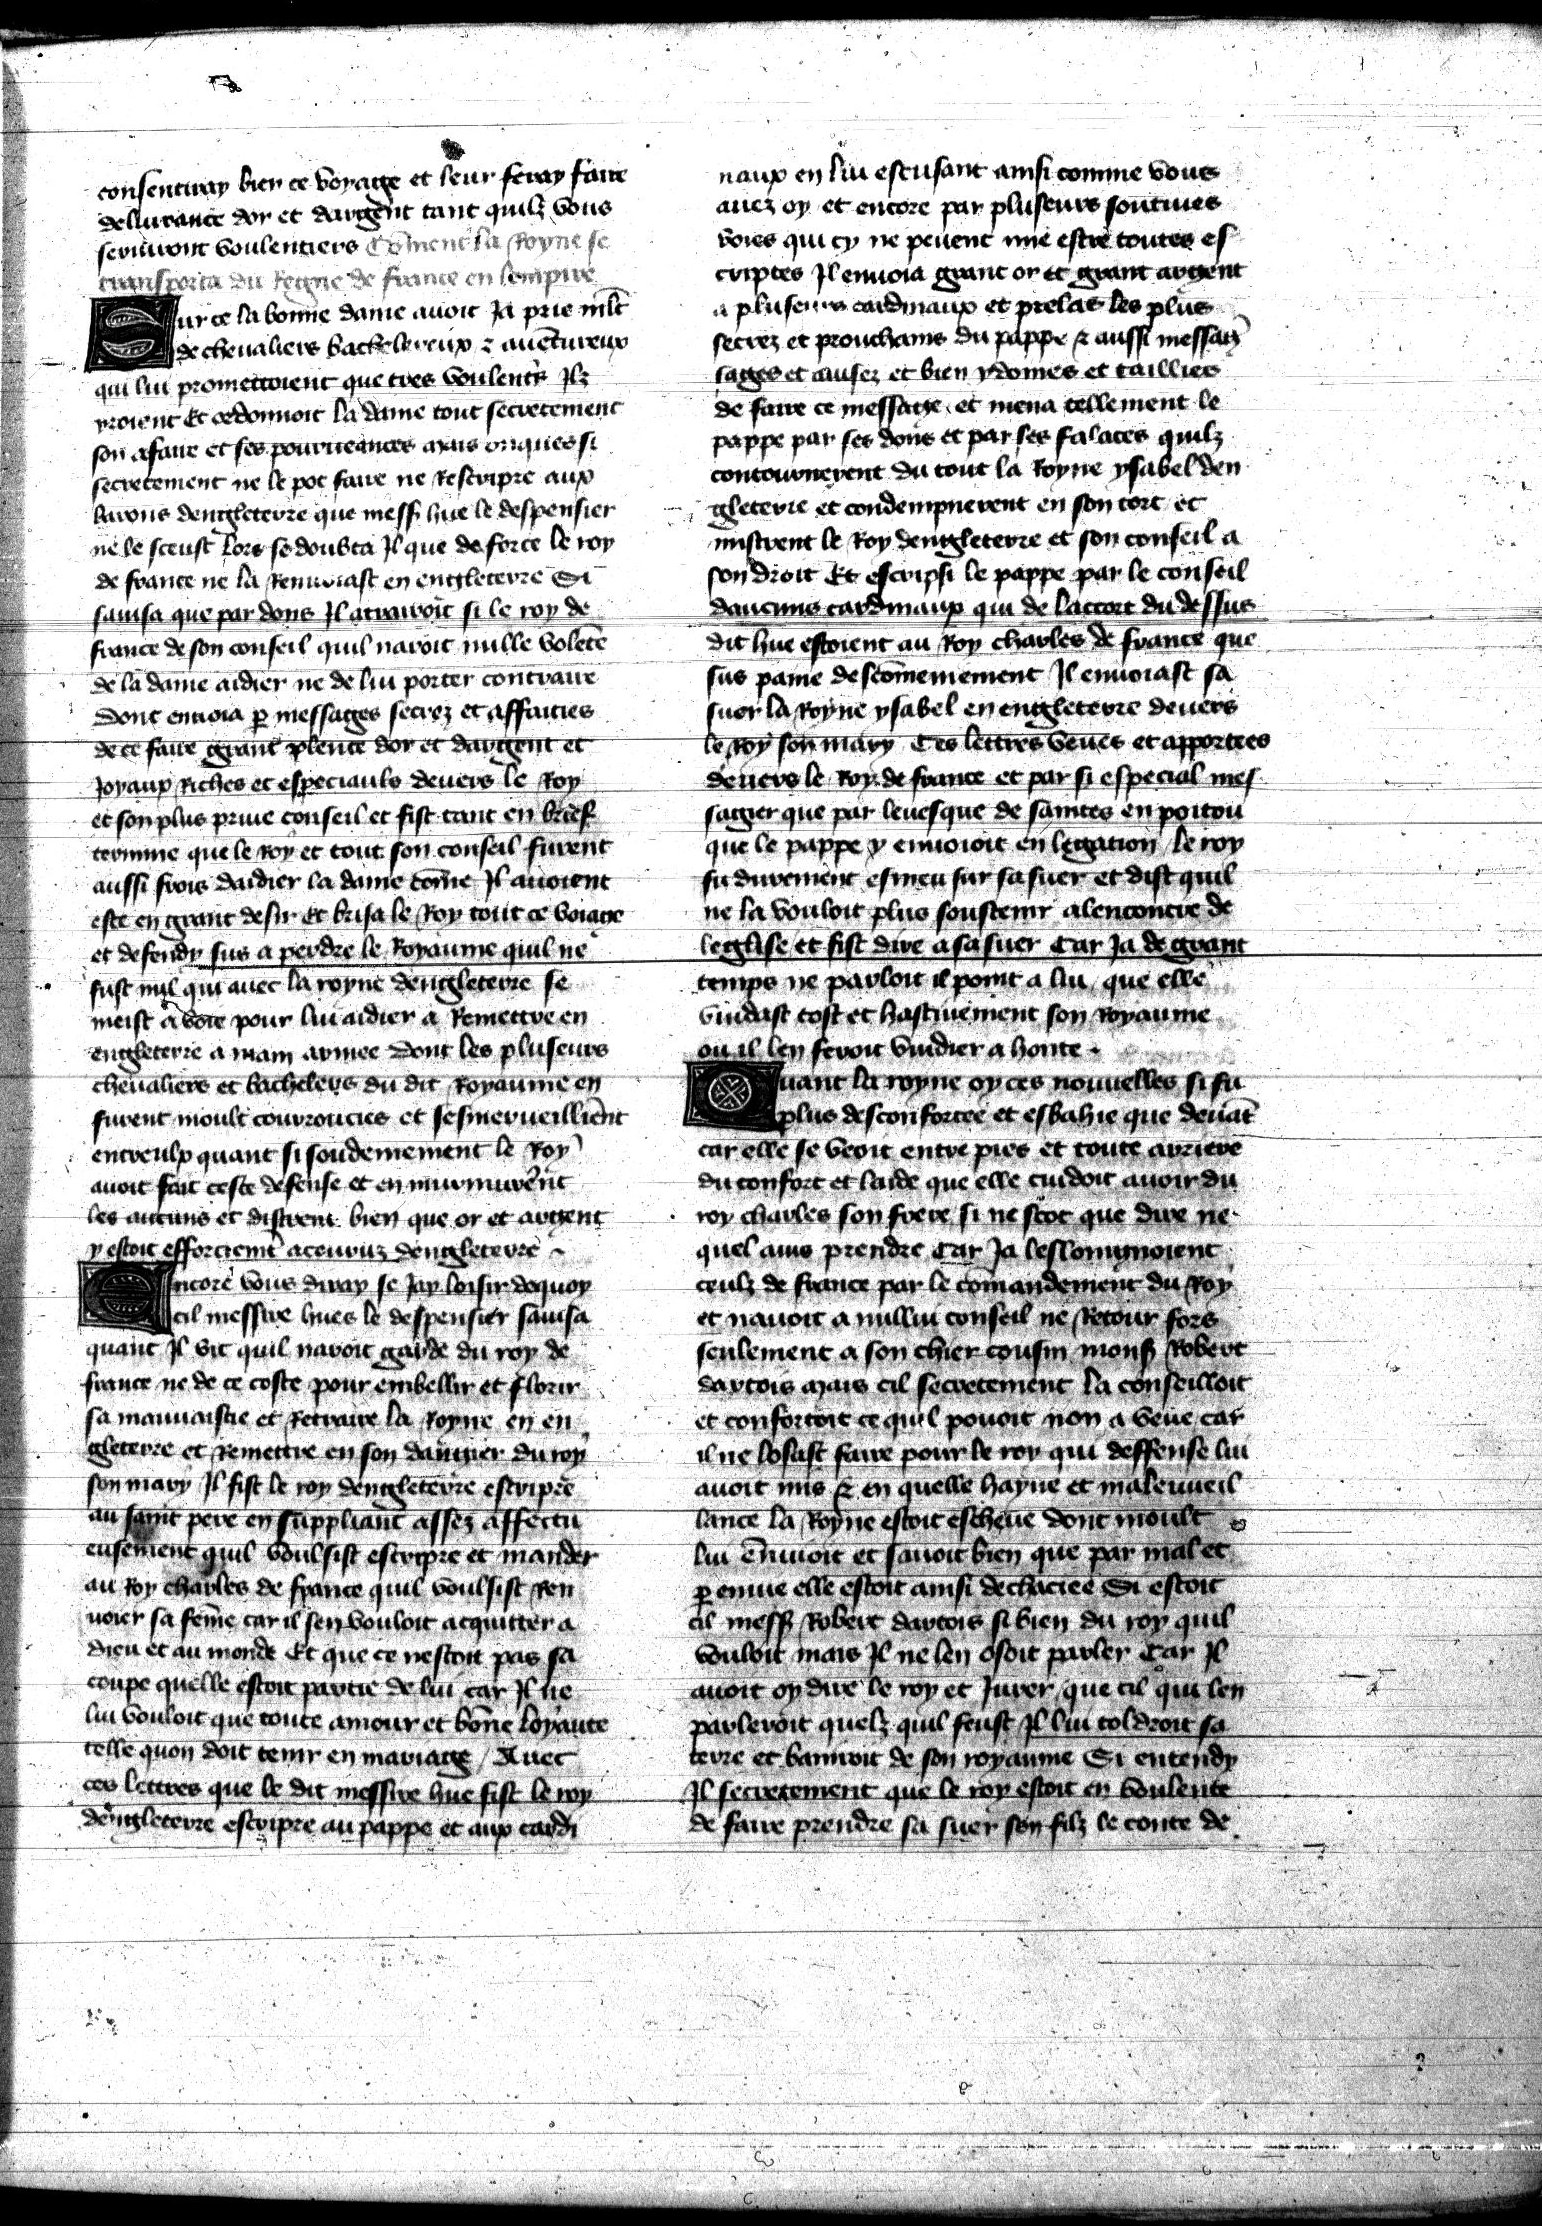 consentiray bien ce voyage et leur feray faire
delivrance dor et dargent tant quilz vous
serviront voulentiers Coment la Royne se
transporta du Regne de france en lempire
Sur ce la bonne dame avoit Ja prie mlt
de chevaliers bachelereux & aventureux
qui lui promettoient que tres voulentrs Ilz
yroient Et ordonnoit la dame tout secretement
son afaire et ses pourveances mais onques si
secretement ne le pot faire ne Rescripre aux
barons dengleterre que messr hue le despensier
ne le sceust Lors se doubta Il que de force le roy
de france ne la Renvoiast en engleterre Si
savisa que par dons Il atrairoit si le roy de
france de son conseil quil naroit nulle volete
de la dame aidier ne de lui porter contraire
Dont envoia p messages secrez et affaities
de ce faire grant plente dor et dargent et
Joyaux Riches et especiaulx devers le Roy
et son plus prive conseil et fist tant en brief
termine que le Roy et tout son conseil furent
aussi frois daidier la dame come Il avoient
este en grant desir Et brisa le Roy tout ce voiage
et defendy sus a perdre le Royaume quil ne
fust nul qui avec la royne dengleterre se
meist a voie pour lui aidier a Remettre en
engleterre a main armee Dont les pluseurs
chevaliers et bachelers du dit Royaume en
furent moult courroucies et sesmerveillient
entreulx quant si soudainement le Roy
avoit fait ceste defense et en murmurerent
les aucuns et distrent bien que or et argent
y estoit efforciemt acouruz dengleterre
Encore vous diray se Jay loisir dequoy
cil messire hues le despensier savisa
quant Il vit quil naroit garde du roy de
france ne de ce coste pour embellir et florir
sa mauvaistie et Retraire la Royne en en
gleterre et Remettre en son dangier du roy
son mary Il fist le roy dengleterre escripre
au saint pere en suppliant assez affectu
eusement quil voulsist escripre et mander
au Roy charles de france quil voulsist Ren
voier sa feme car il sen vouloit acquitter a
dieu et au monde Et que ce nestoit pas sa
coupe quelle estoit partie de lui car Il ne
lui vouloit que toute amour et bone Loyaute
telle quon doit tenir en mariage Avec
ces lettres que le dit messire hue fist le roy
dengleterre escripre au pappe et aux cardi
naux en lui escusant ainsi comme vous
avez oy et encore par pluseurs soutives
voies qui cy ne pevent mie estre toutes es
criptes Il envoia grant or et grant argent
a pluseurs cardinaux et prelas les plus
secrez et prouchains du pappe & aussi messag
sages et avisez et bien ydoines et taillies
de faire ce message et mena tellement le
pappe par ses dons et par ses falaces quilz
contournerent du tout la Royne ysabel den
gleterre et condempnerent en son tort et
mistrent le Roy dengleterre et son conseil a
son droit Et escripsi le pappe par le conseil
daucuns cardinaux qui de laccort du dessus
dit hue estoient au Roy charles de france que
sus paine descomeniement Il envoiast sa
suer la Royne ysabel en engleterre devers
le Roy son mary Ces lettres veues et apportees
devers le Roy de france et par si especial mes
sagier que par levesque de saintes en poitou
que le pappe y envoioit en legation le roy
fu durement esmeu sur sa suer et dist quil
ne la vouloit plus soustenir alencontre de
leglise et fist dire a sa suer Car Ja de grant
temps ne parloit il point a lui que elle
vuidast tost et hastivement son Royaume
ou il len feroit vuidier a honte
Quant la royne oy ces nouvelles si fu
plus desconfortee et esbahie que devat
car elle se veoit entre pies et toute arriere
du confort et laide que elle cuidoit avoir du
roy charles son frere si ne scot que dire ne
quel avis prendre Car Ja leslongnoient
ceulz de france par le comandement du Roy
et navoit a nullui conseil ne Retour fors
seulement a son chier cousin monsr Robert
dartois mais cil secretement la conseilloit
et confortoit ce quil povoit non a veue car
il ne losast faire pour le roy qui deffense lui
avoit mis & en quelle hayne et malevueil
lance la Royne estoit escheue dont moult
lui envioit et savoit bien que par mal et
p envie elle estoit ainsi dechaciee Si estoit
cil messr Robert dartois si bien du roy quil
vouloit mais Il ne len osoit parler Car Il
avoit oy dire le roy et Jurer que cil qui len
parleroit quelz quil feust Il lui toldroit sa
terre et banniroit de son royaume Si entendy
Il secretement que le roy estoit en voulente
de faire prendre sa suer son filz le conte de